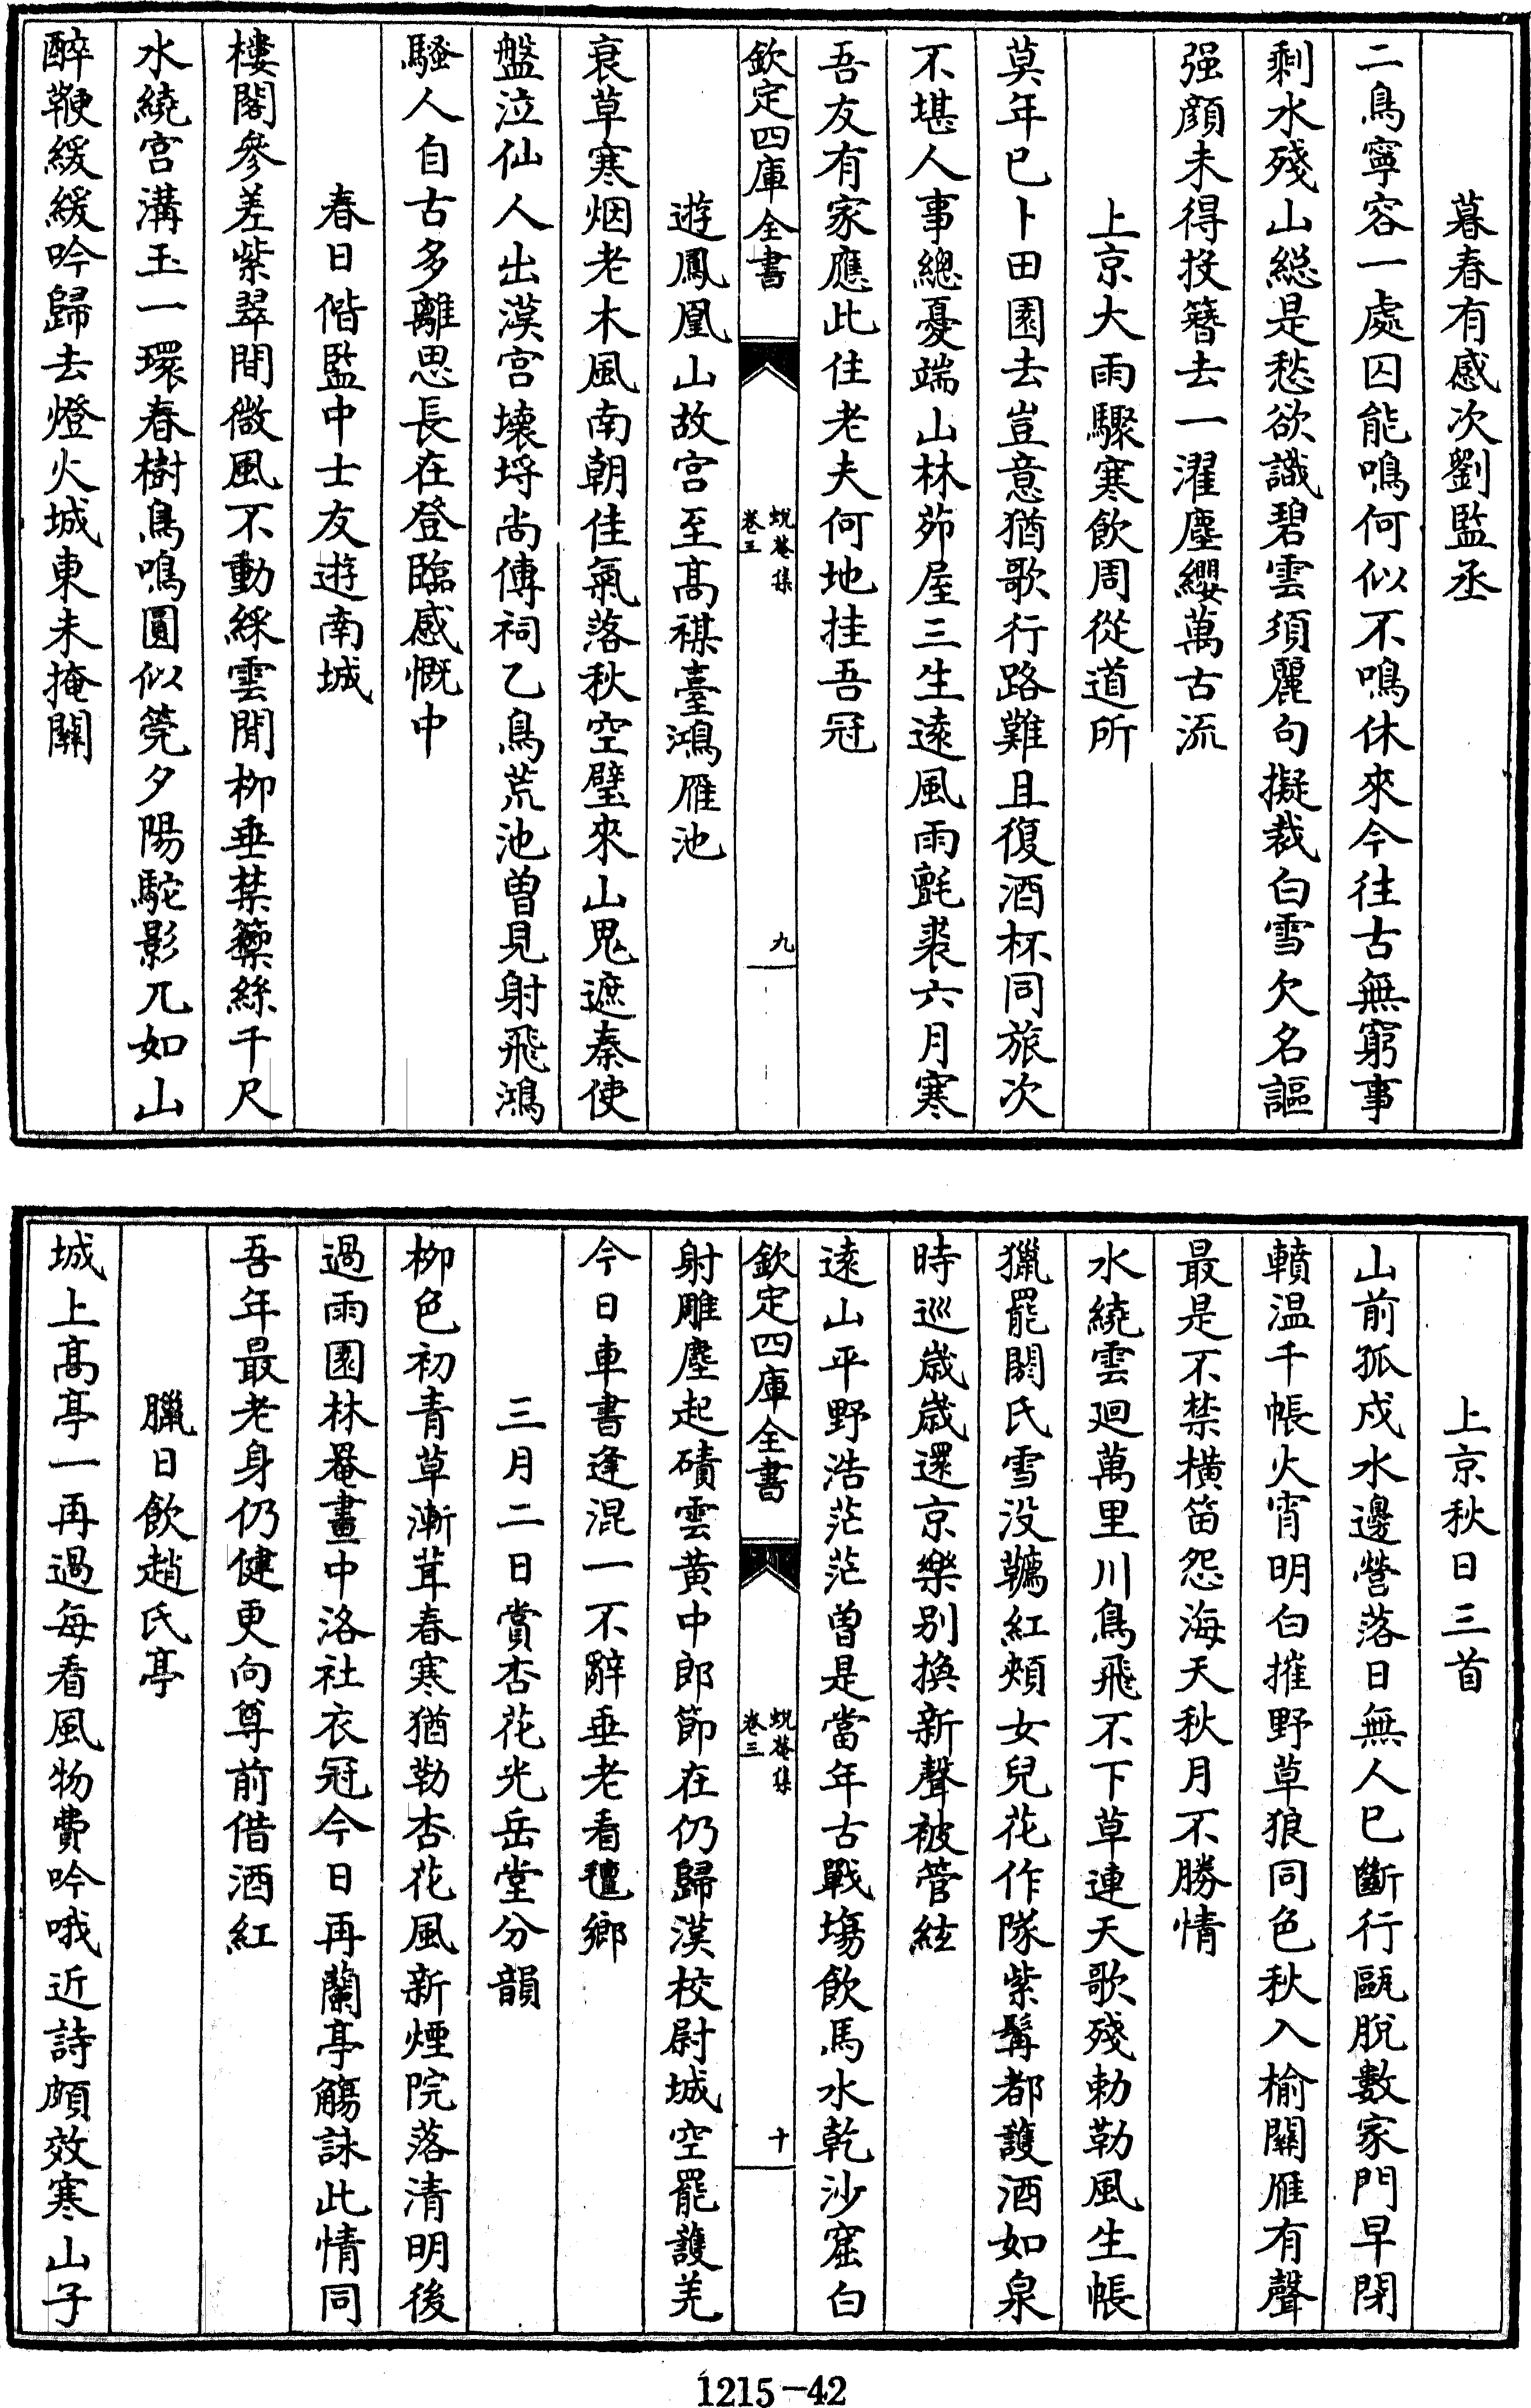 暮春有感次劉監丞
二鳥寧容一處囚能鳴何似不鳴休來今往古無窮事
剩水殘山総是愁欲識碧雲須麗句擬裁白雪欠名謳
强顔未得投簪去一濯塵纓萬古流
上京大雨驟寒飲周從道所
莫年已卜田園去豈意猶歌行路難且復酒杯同旅次
不堪人事總憂端山林茆屋三生遠風雨氈裘六月寒
吾友有家應此住老夫何地挂吾冠
欽定四庫全書
蛻菴集
卷三
九
遊鳳凰山故宫至髙禖臺鴻雁池
衰草寒烟老木風南朝佳氣落秋空璧來山鬼遮秦使
盤泣仙人出漢宫壊埒尚傳祠乙鳥荒池曽見射飛鴻
騷人自古多離思長在登臨感慨中
春日偕監中士友遊南城
樓閣參差紫翠間微風不動綵雲閒栁垂禁籞絲千尺
水繞宫溝玉一環春樹鳥鳴圓似筦夕陽駝影兀如山
醉鞭緩緩吟歸去燈火城東未掩關
上京秋日三首
山前孤戍水邊營落日無人已斷行甌脫數家門早閉
轒温千帳火宵明白摧野草狼同色秋入榆關雁有聲
最是不禁横笛怨海天秋月不勝情
水繞雲廻萬里川鳥飛不下草連天歌殘勅勒風生帳
獵罷閼氏雪没韉紅頰女兒花作隊紫髯都䕶酒如泉
時巡嵗嵗還京樂别換新聲被管絃
遠山平野浩茫茫曽是當年古戰塲飲馬水乾沙窟白
欽定四庫全書
蛻菴集
卷三
十
射雕塵起磧雲黄中郎節在仍歸漢校尉城空罷䕶羌
今日車書逢混一不辭垂老看氊鄉
三月二日賞杏花光岳堂分韻
栁色初青草漸茸春寒猶勒杏花風新煙院落清明後
過雨園林罨畫中洛社衣冠今日再蘭亭觴詠此情同
吾年最老身仍健更向尊前借酒紅
臘日飲趙氏亭
城上髙亭一再過每看風物費吟哦近詩頗效寒山子
1215-42